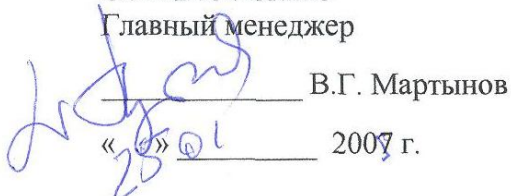 Главный менеджер
В.Г. Мартынов
«25» 01 2008 г.